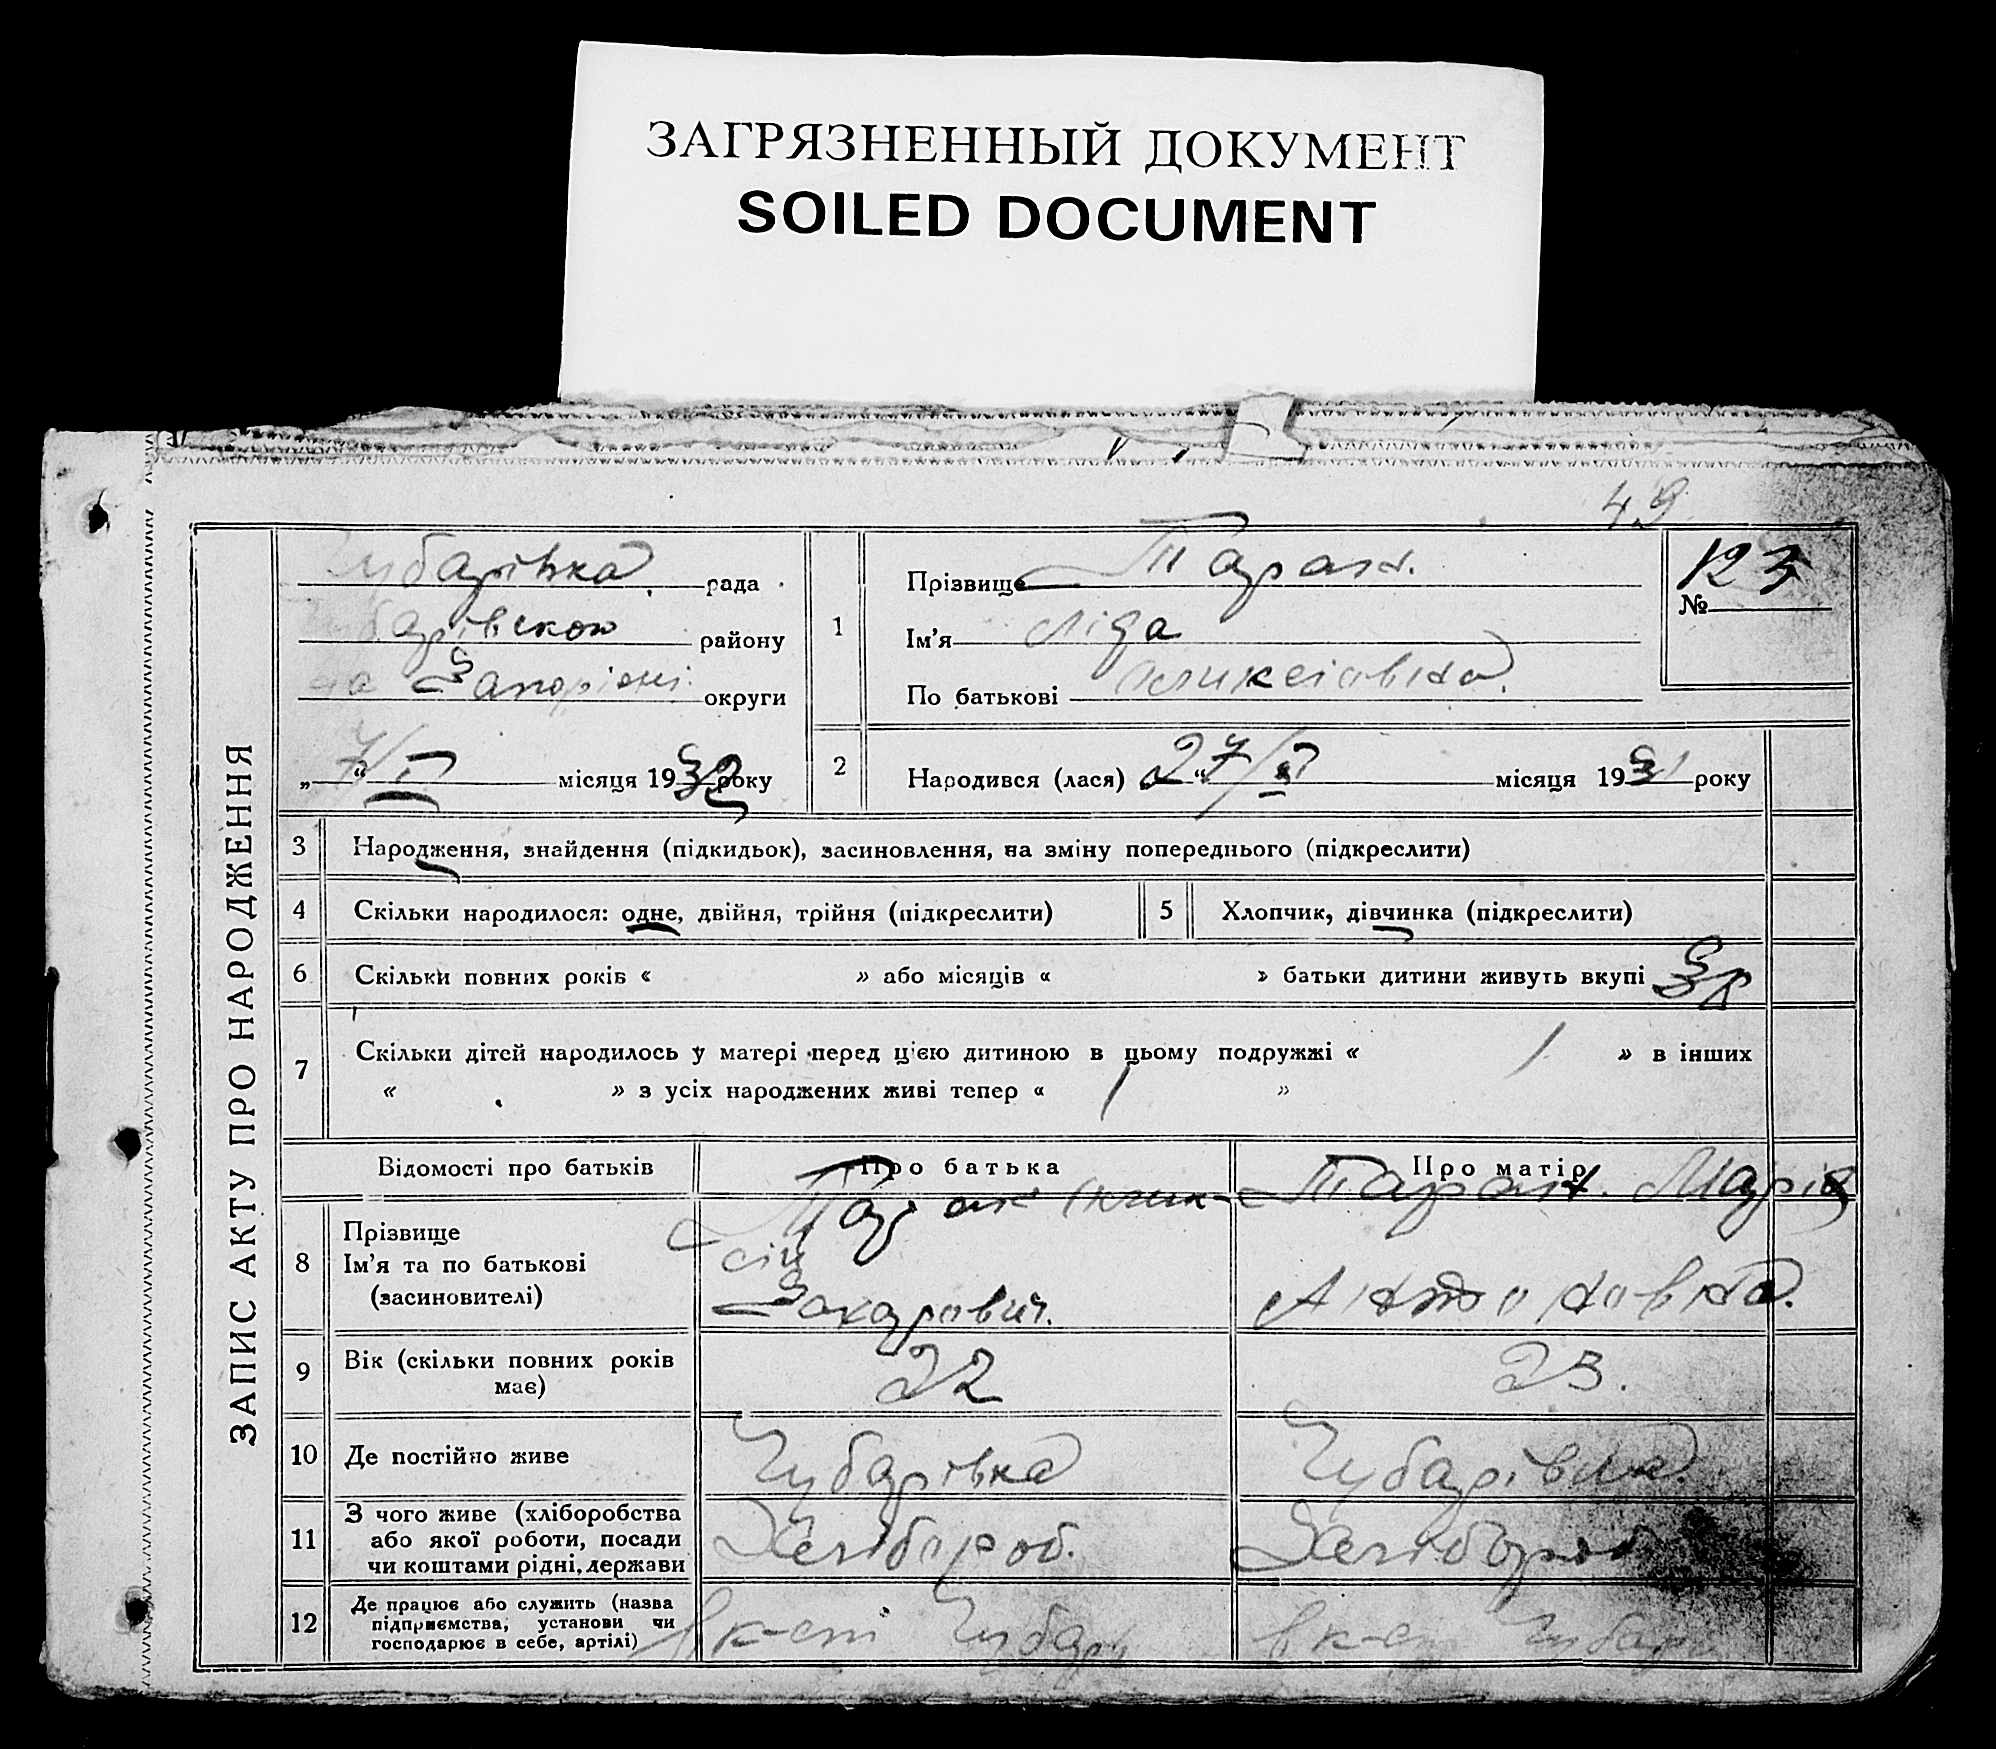 ЗАГРЯЗНЕННЫЙ ДОКУМЕНТ
SOILED DOCUMENT
49
ЗАПИС АКТУ ПРО НАРОДЖЕННЯ
Чубарівка рада
барівскою району
Запоріжі округи
„ 7/ “ місяця 1932 року
1
Прізвище Таран.
Ім'я Ліда
По батькові Оликсіовна.
№ 123
2 Народився (лася) 27/ “ місяця 1931 року
3 Народження, знайдення (підкидьок), засиновлення, на зміну попереднього (підкреслити)
4 Скільки народилося: одне, двійня, трійня (підкреслити) 5 Хлопчик, дівчинка (підкреслити)
6 Скільки повних років « » або місяців « » батьки дитини живуть вкупі 3р
7 Скільки дітей народилось у матері перед цією дитиною в цьому подружжі « 1 » в інших
« » з усіх народжених живі тепер « 1 »
Відомості про батьків Про батька Про матір
8 Прізвище
Ім'я та по батькові
(засиновителі)
Таран Олик-
сій
Захарович.
Таран. Марія
Антоновна.
9 Вік (скільки повних років
має)
22 23.
10 Де постійно живе Чубарівка Чубарівка.
11 З чого живе (хліборобства
або якої роботи, посади
чи коштами рідні, держави
Хлібороб. Хлібороб
12 Де працює або служить (назва
підприємства, установи чи
господарює в себе, артілі)
в к-сті Чубарі в к-ст Чубар